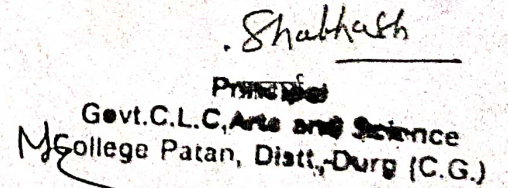 Principal
Govt.C.L.C,Arts and Science
College Patan, Distt.,-Durg (C.G.)